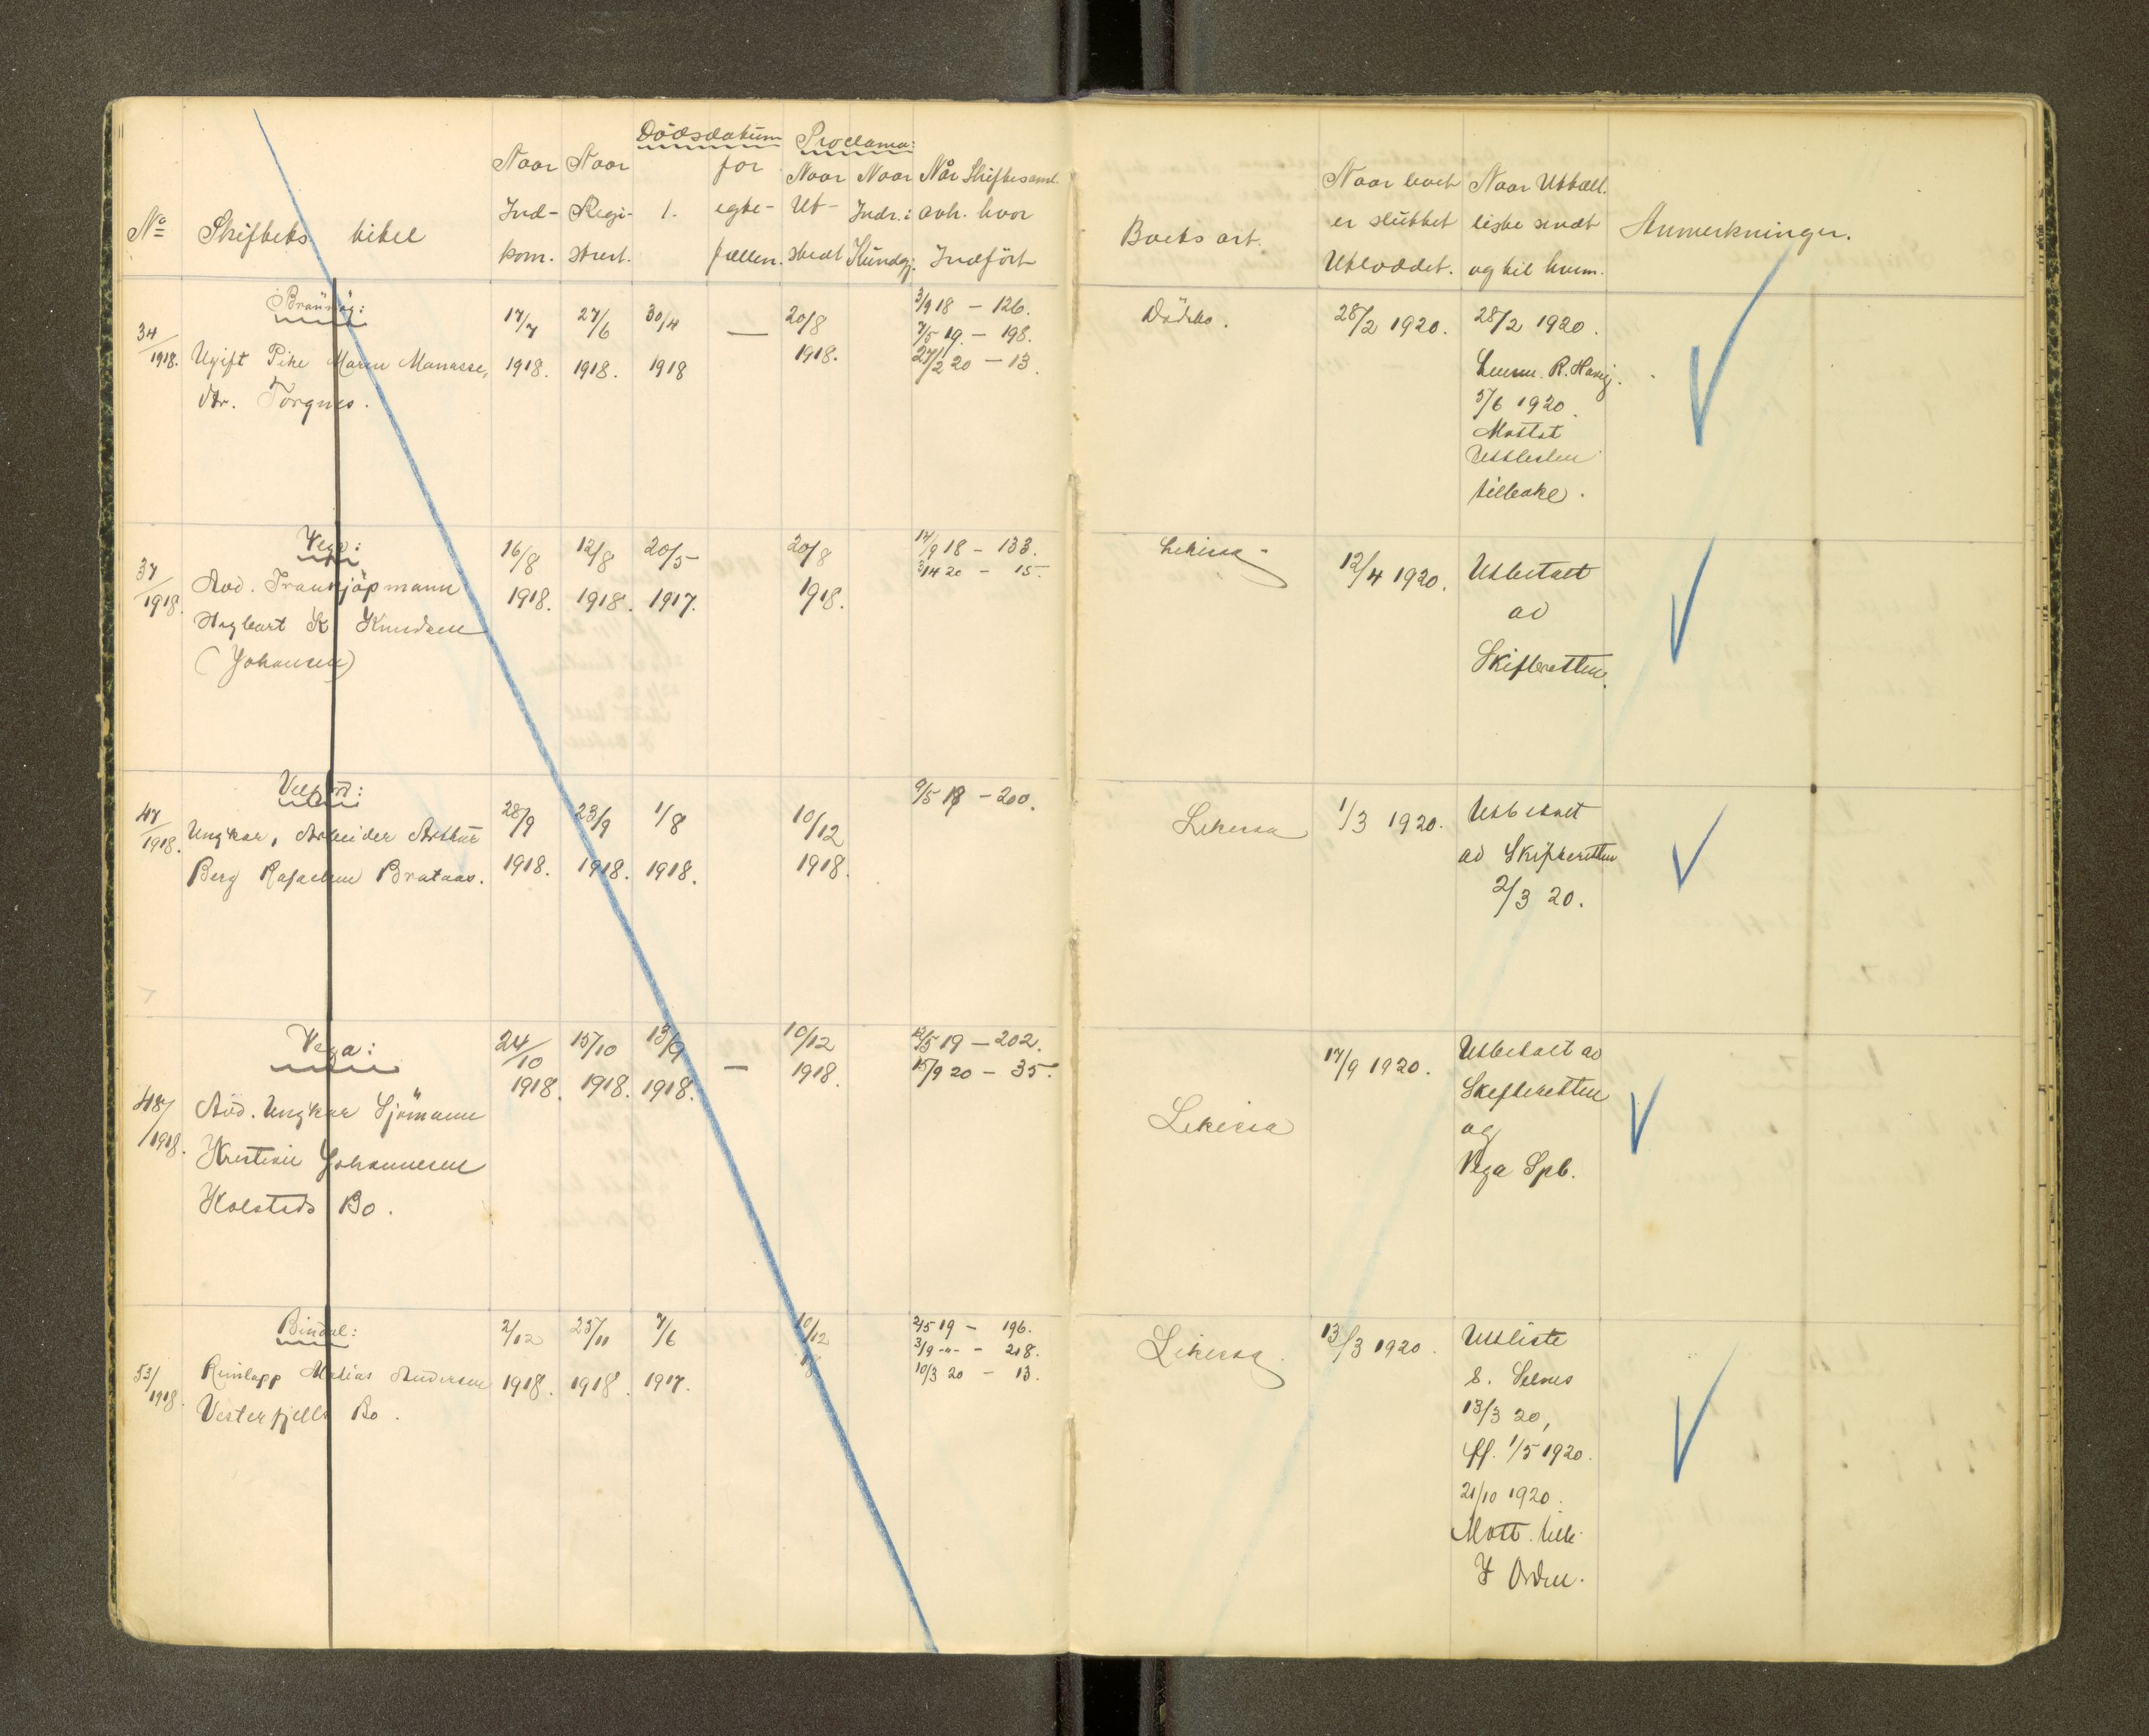 Dödsdatum Proclama:
Naar Naar for Naar Naar Når Skiftesaml.
No Skiftets titel Ind- Regi- 1. egte- Ut- Indr.: avh. hvor
kom. strert. fællen. stedt Kundgj. Indført
Boets art. Naar boet Naar Utbæll.
er sluttet liste sendt Anmerkninger.
Utloddet. og til hvem.
Brönnöy:
34/1918. 17/7 27/6 30/4 — 20/8 3/9 18 - 126.
7/5 19 - 198.
Ugift Pike Maren Manasse, 1918. 1918. 1918 1918. 27/2 20 - 13.
dtr. Torgnes.
Dödsbo. 28/2 1920. 28/2 1920.
Lensm. R. Havig.
5/6 1920.
Mottat
Utlisten
tilbake.
Vega:
37/1918. 16/8 12/8 20/5 20/8 14/9 18 - 133.
Avd. 1918. 1918. 1917. 1918. 3/4 20 - 15.
Hagbart K Knudsen
(Johansen)
12/4 1920. Utbetalt
av
Skifteretten.
Velfjord:
47/1918. 28/9 23/9 1/8 10/12 9/5 19 - 200.
Ungkar, Arbeider Arthur
Berg Rafaelsen Brataas. 1918. 1918. 1918. 1918.
1/3 1920. Utbetalt
av Skifteretten
2/3 20.
Vega:
48/1918. 24/10 15/10 13/9 — 10/12 12/5 19 - 202.
1918. 1918. 1918. 1918. 15/9 20 - 35.
Avd. Ungkar Sjömann
Kristian Johannesen
Holsteds Bo.
17/9 1920. Utbetalt av
Skifteretten
og
Vega Spb.
Bindal:
53/1918. 2/12 25/11 7/6 10/12 2/5 19 - 196.
3/9 -"- - 218.
Reinlapp Matias Andersen 1918. 1918. 1917. 10/3 20 - 13.
Vesterfjells Bo.
13/3 1920. Utliste
S. Selnes
13/3 20,
ff. 1/5 1920.
21/10 1920.
Mott. tilb.
I Orden.